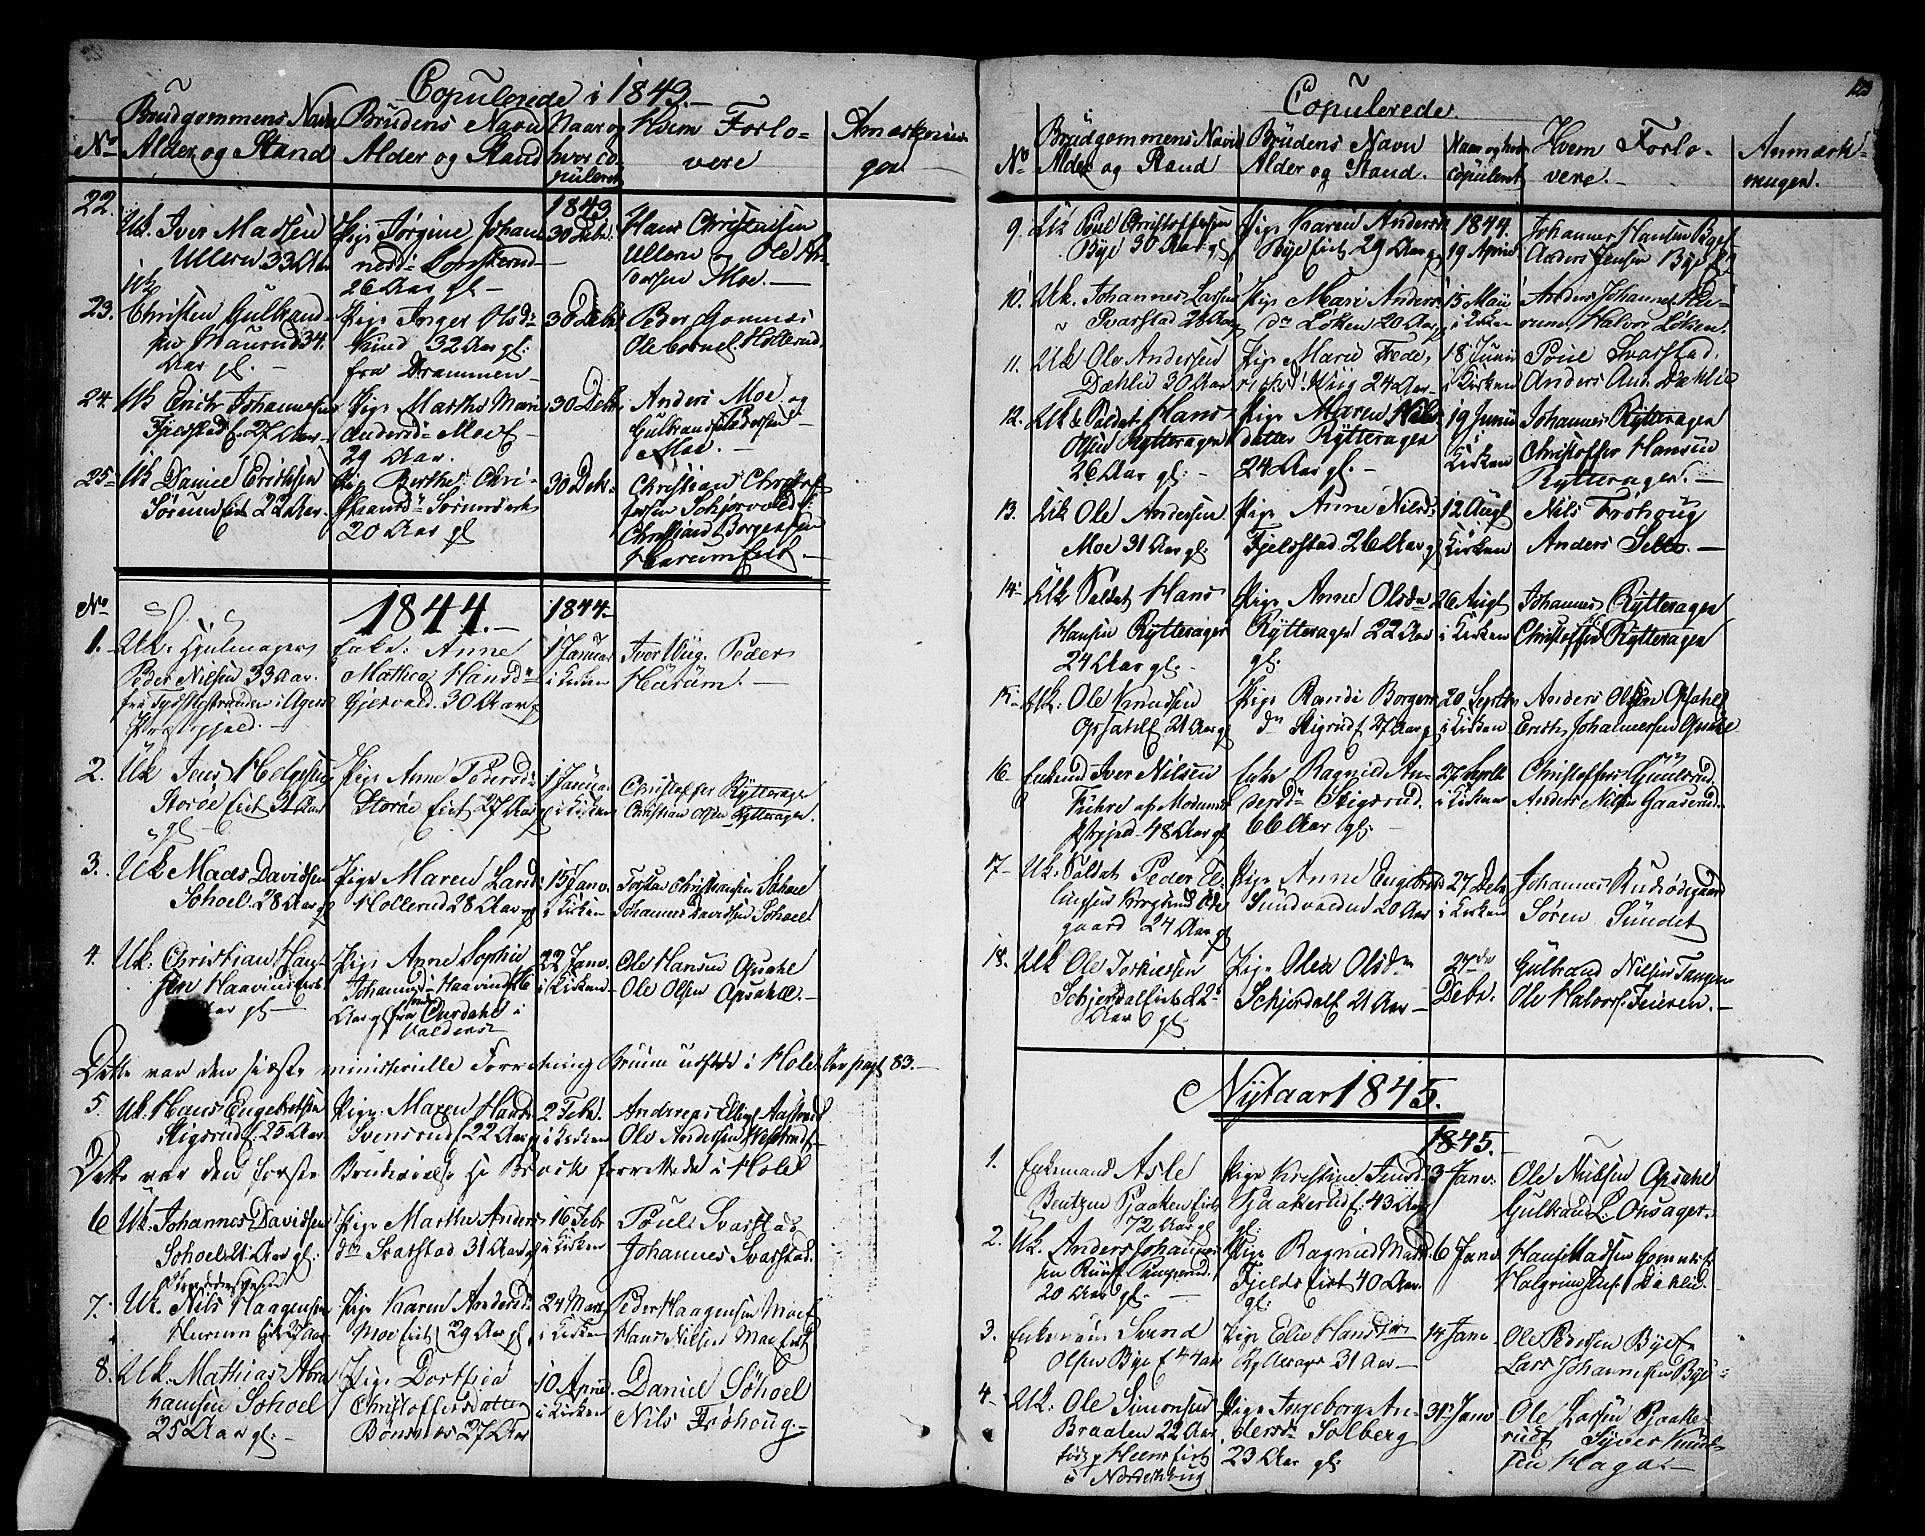 Copulerede i 1843.
No
Brudgommens Navn
Alder og Stand
Brudens Navn
Alder og Stand
Naar og
hvor co-
puleret
Hvem Forlo-
vere
Anmærknin-
gen
22.
Uk. Iver Madsen
Ullern 33 Aar
Pige Jørgine Johan
nesd: Lonkerud
26 Aar gl.
1843
30 Debr
Hans Christensen
Ullern og Ole
Moe.
23.
Uk
Christen Gulbrand-
sen Maurud 34.
Aar gl.
Pige Inger Olsdr
32 Aar gl:
fra Drammen
30 Debr
Peder Gomnæs
Ole Cornel. Hollerud.
24.
Uk Erich Johannesen
Fjelstad E. 27 Aar
Pige Marthe Marie
Andersdr Moe E
29 Aar.
30 Debr
Anders Moe og
Gulbrand Pedersen
Moe.
25
Uk Daniel Erichsen
Sørum Eiet 22 Aar.
Pige Berthe Chri-
stiansdr Sørumeiet
20 Aar gl
30 Debr
Christian Christof
fersen
Christian Borgersen
Harum Eiet.
No
1844.
1844.
1.
Uk. Hjulmager
Peder Nielsen 33 Aar.
fra i Agers
Præstegjeld.
Enke: Anne
Mathea Hansdr
Gjesvald. 30 Aar gl
1 Januar
i Kirken
Iver Wiig. Peder
Harum.
2.
Uk Jens Helgesen
Storøe Eiet 31 Aar
gl
Pige Anne Pedersdr
Storøe Eiet 27 Aar gl
1 Januar
i Kirken
Christoffer Rytterager
Christian Olsen Rytterager.
3.
Uk Mads Davidsen
Sohoel. 28 Aar gl
Pige Maren Larsd:
Hollerud 28 Aar gl
15 Janv.
i Kirken
Torstен Christiansen Sohoel
Johannes Davidsen Sohoel
4.
Uk: Christian Han-
sen Haavind Eiet
Aar gl
Pige Anne Sophie
Johannesd: Haavind 26
Aar gl fra Ourdahl i
Valders
22 Janv.
i Kirken
Ole Hansen Opsahl
Ole Olsen Opsahl.
Dette var den sidste ministerielle Forretning Bruun udførte i Hole. See pag: 83.
5.
Uk. Hans Engebretsen
Stigsrud E. 25 Aar
Pige Maren Hansd
Svensrud E. 22 Aar gl
2 Febr.
i Kirken
Andreas
Ole Andersen
Dette var den første Brudevielse forrettede i Hole
6
Uk. Johannes Davidsen
Sohoel 21 Aar gl:
Pige Marthe Anders
dtr Svarstad 31 Aar gl
16 Febr
i Kirken
Poul Svarstad
Johannes Svarstad.
7.
Uk. Nils Haagensen
Harum Eiet 27 Aar
Pige Karen Andersd:
Moe Eiet 29 Aar gl
24 Marts
i Kirken
Peder Haagensen Moe E
Hans Nilsen Moe Eiet
8.
Uk. Mathias Abra
hamsen Sohoel
25 Aar gl:
Pige Dorthea
Christoffersdatter
Bønsnæs 27 Aar
10 April
i Kirken
Daniel Sohoel
Nils Frøhoug
123
Copulerede.
No
Brudgommens Navn
Alder og Stand
Brudens Navn
Alder og Stand.
Naar og hvor
copuleret
Hvem Forlo-
vere.
Anmærk-
ningen.
9.
Uk Poul Christoffersen
Bye 30 Aar gl
Pige Karen Andersd
Bye Eiet 29 Aar gl
1844.
19 April
Johannes Hansen Bye E
Anders Jensen Bye E
10.
Uk. Johannes Larsen
Svarstad 28 Aar gl
Pige Mari Anders
dr Løken 20 Aar gl
15 Mai
i Kirken
Anders Johannes
Halvor Løken.
11.
Uk Ole Andersen
Dæhlie 30 Aar
Pige Maria Frede-
riksd: Wiig 24 Aar
18 Junii
i Kirken
Poul Svarstad.
Anders Dæhlie
12.
Uk & Soldat Hans
Olsen Rytteragen
26 Aar gl:
Pige Maren Nils
datter Rytteragen
24 Aar gl.
19 Junii
Kirken
Johannes Rytteragen
Christoffer Hansen
Rytterager.
13.
Uk Ole Andersen
Moe 31 Aar gl.
Pige Anne Nilsd:
Fjeldstad 26 Aar gl
12 Augt
Kirken
Nils Frøhoug
Anders Selte.
14
Uk Soldat Hans
Hansen Rytterager
24 Aar gl.
Pige Anne Olsdr
Rytterager 22 Aar
gl:
26 Augt
i Kirken
Johannes Rytterager
Christoffer Rytteragen
15
Uk: Ole Knudsen
Opsahl E. 21 Aar gl
Pige Randi Borgers
dr Stigsrud E 27 Aar gl
20 Septbr
i Kirken
Anders Olsen Opsahl
Erich Johannesen Opsahl
16
Enkemd Iver Nilsen
Fuhre af Modums
Prgjeld 48 Aar gl
Enke Ragnild An-
dersdr Stigsrud.
66 Aar gl:
27 Septbr
i Kirken
Christoffer
Anders Nilsen Gaaserud.
17
Uk. Soldat Peder El-
lingsen
gaard 24 Aar gl
Pige Anne Engebretsd
Sundvolden 20 Aar
27 Debr
i Kirken
Johannes
Søren Sundet
18.
Uk Ole Torkelsen
Schjerdal Eiet 22
Aar gl.
Pige Olea Olsdr
Schjerdal E 21 Aar
27de
Debr.
Gulbrand Nilsen Tangen
Ole Halvors: Feieren.
Nytaar 1845.
1845.
1.
Enkemand Asle
Bentzen Gjaaken Eiet
72 Aar gl
Pige Kirstine Jensd
43 Aar
gl.
3 Janv.
Ole Nielsen Opsahl
Gulbrand L. Onsager.
2.
Uk. Anders Johannes
sen
20 Aar gl.
Pige Ragnild Madsd.
Fjelds Eiet 40 Aar
gl.
6 Janv
Hans Madsen Gomnæs E
Halgrim Dæhlie.
3.
Enkemand Svend
Olsen Bye E 44 Aar
Pige Eli Hansdtr
Rytterager 31 Aar
14 Janv
Ole Bentsen Bye E
Lars Johannesen Bye
4
Uk: Ole Simonsen
Braaten 22 Aar
Heens Eiet
i Norderhoug
Pige Ingeborg An-
dersdr Solberg
23 Aar gl:
31 Janv
Ole Larsen Gjaake-
rud Syver Knud
sen Haga.